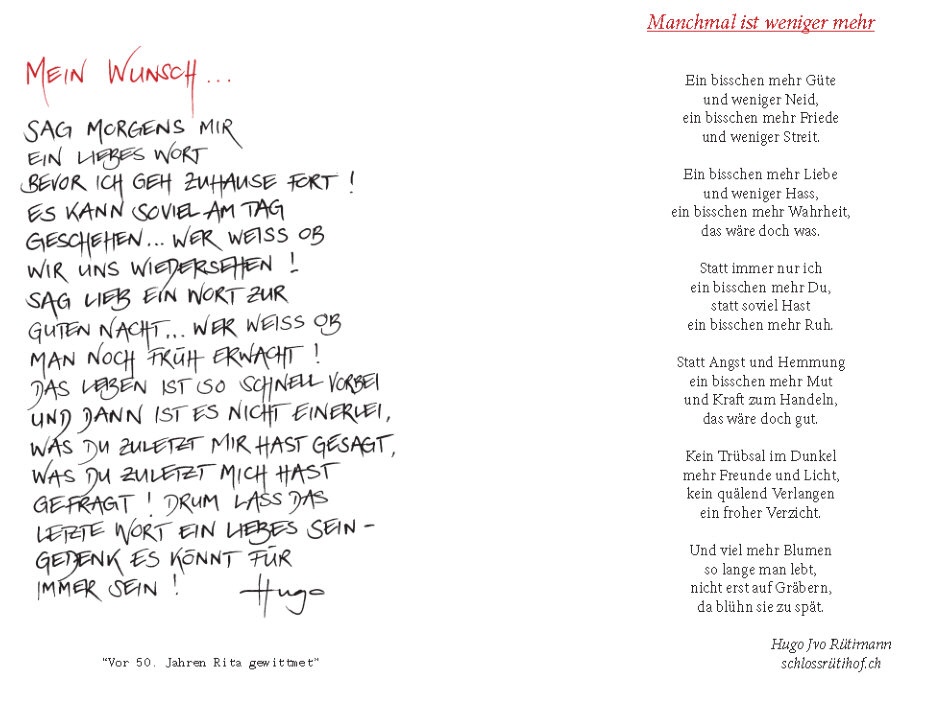 MEIN WUNSCH...
SAG MORGENS MIR
EIN LIEBES WORT
BEVOR ICH GEH ZUHAUSE FORT!
ES KANN SOVIEL AM TAG
GESCHEHEN... WER WEISS OB
WIR UNS WIEDERSEHEN!
SAG LIEB EIN WORT ZUR
GUTEN NACHT... WER WEISS OB
MAN NOCH FRÜH ERWACHT!
DAS LEBEN IST SO SCHNELL VORBEI
UND DANN IST ES NICHT EINERLEI,
WAS DU ZULETZT MIR HAST GESAGT,
WAS DU ZULETZT MICH HAST
GEFRAGT! DRUM LASS DAS
LETZTE WORT EIN LIEBES SEIN -
GEDENK ES KÖNNT FÜR
IMMER SEIN!
Hugo
"Vor 50. Jahren Rita gewittmet"
Manchmal ist weniger mehr
Ein bisschen mehr Güte
und weniger Neid,
ein bisschen mehr Friede
und weniger Streit.
Ein bisschen mehr Liebe
und weniger Hass,
ein bisschen mehr Wahrheit,
das wäre doch was.
Statt immer nur ich
ein bisschen mehr Du,
statt soviel Hast
ein bisschen mehr Ruh.
Statt Angst und Hemmung
ein bisschen mehr Mut
und Kraft zum Handeln,
das wäre doch gut.
Kein Trübsal im Dunkel
mehr Freunde und Licht,
kein quälend Verlangen
ein froher Verzicht.
Und viel mehr Blumen
so lange man lebt,
nicht erst auf Gräbern,
da blühn sie zu spät.
Hugo Jvo Rütimann
schlossrütihof.ch